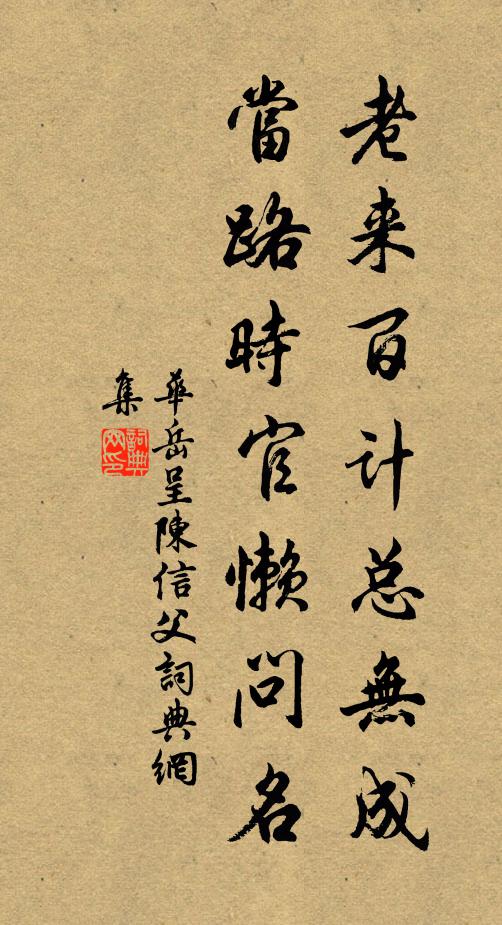 老来百计总無成
當路時官懶問名
華岳呈陳信父詞典網
集
詞典网印